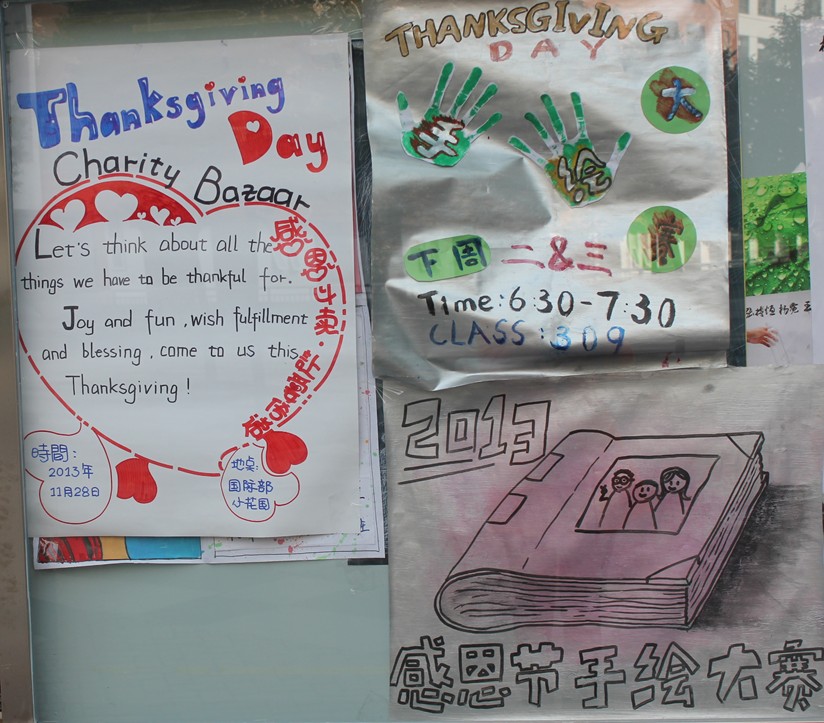 Thanksgiving
Day
Charity Bazaar
Let's think about all the
things we have to be thankful for.
Joy and fun ,wish fulfillment
and blessing , come to us this
Thanksgiving !
感恩义卖·让爱传递
時間:
2013年
11月28日
地点:
国际部
小花园
THANKSGIVING
DAY
手 绘 大 赛
下周 二&三
Time:6:30-7:30
CLASS:309
2013
感恩节手绘大赛